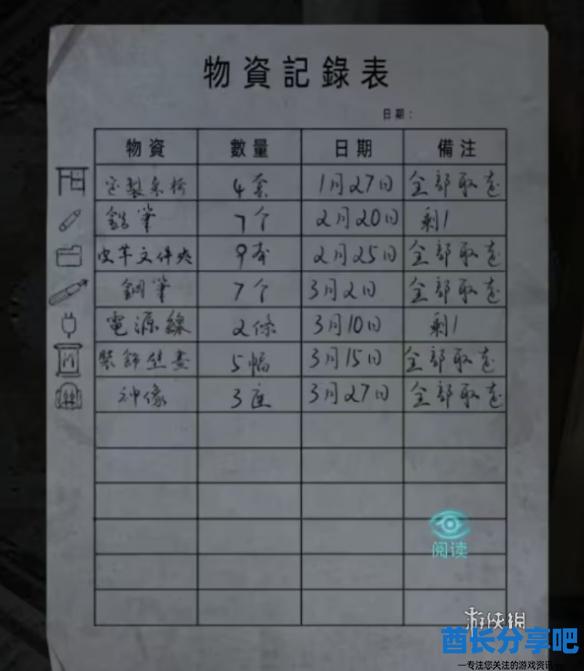 物資記錄表
日期：
物資 數量 日期 備注
定製桌椅 4套 1月27日 全部取走
鉛筆 7个 2月20日 剩1
皮革文件夾 9本 2月25日 全部取走
鋼筆 7个 3月2日 全部取走
電源線 2條 3月10日 剩1
裝飾壁畫 5幅 3月15日 全部取走
神像 3座 3月27日 全部取走
阅读
游侠网
酋长分享吧
-专注您关注的游戏资讯